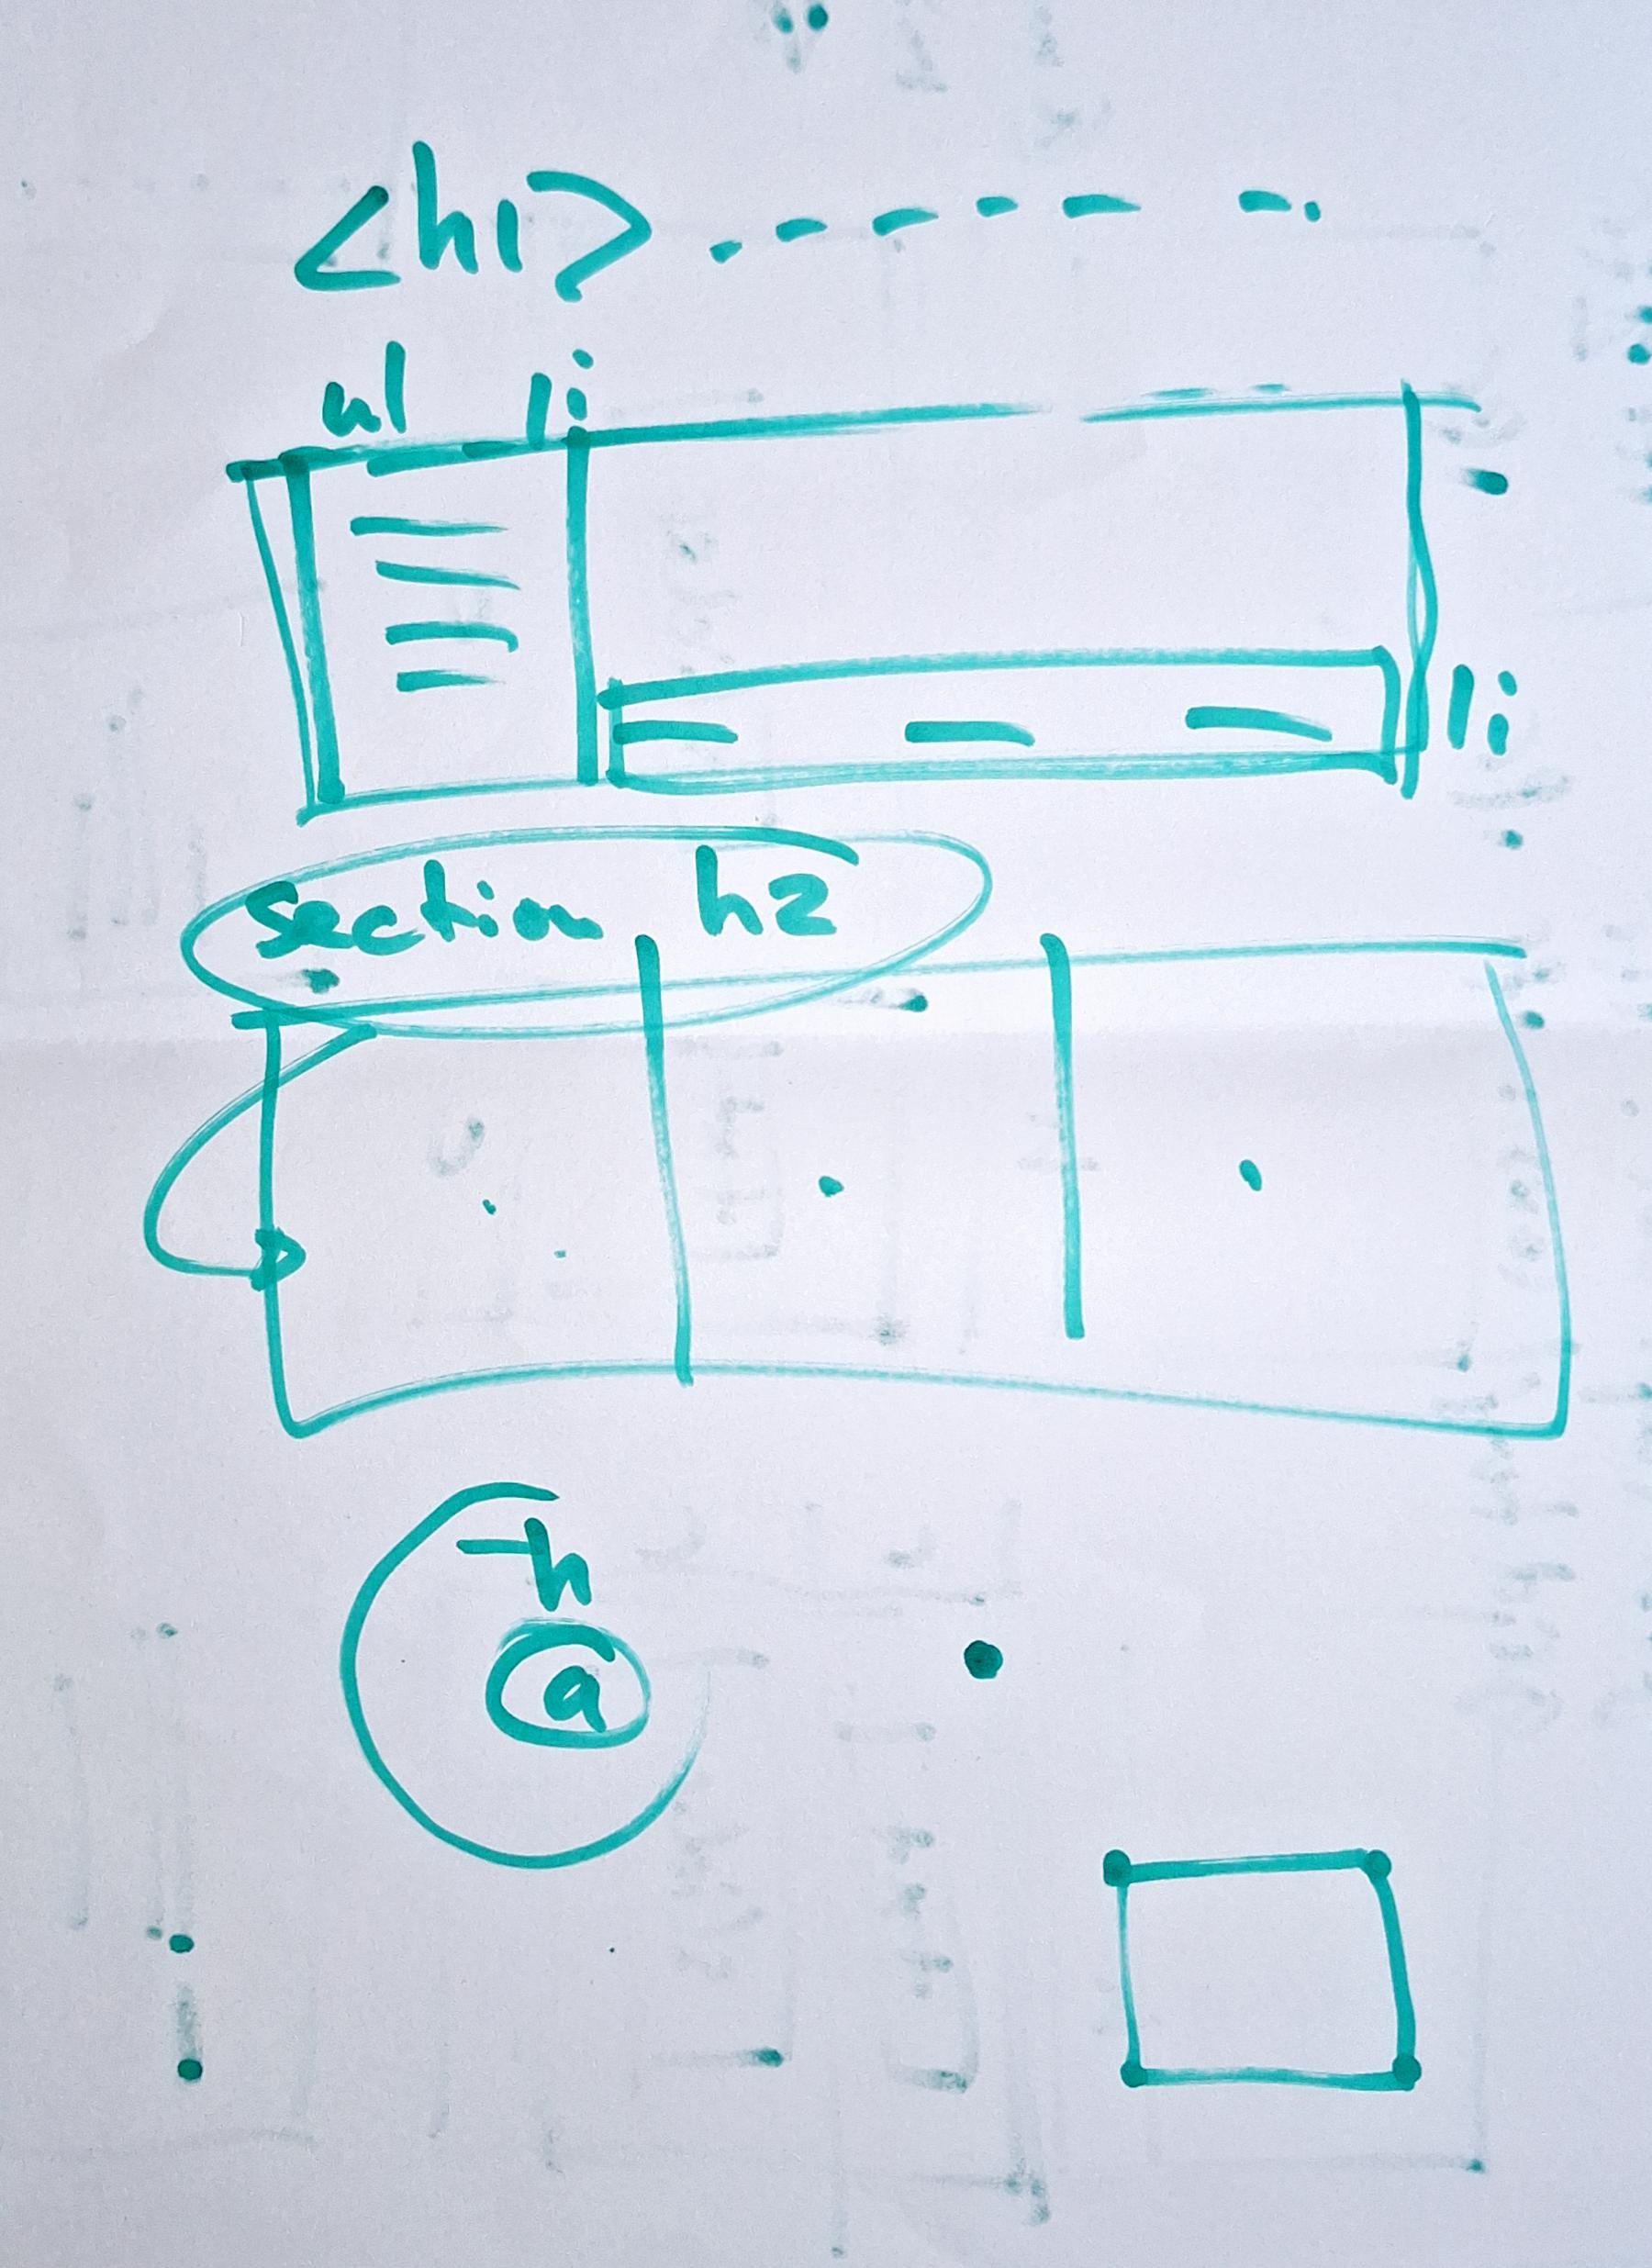 <h1>
ul li
li
section h2
h
a